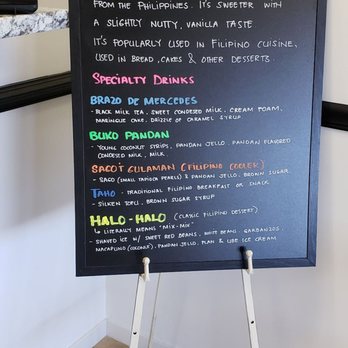 FROM THE PHILIPPINES. IT'S SWEETER WITH
A SLIGHTLY NUTTY, VANILLA TASTE.
IT'S POPULARLY USED IN FILIPINO CUISINE,
USED IN BREAD, CAKES & OTHER DESSERTS.
SPECIALTY DRINKS
BRAZO DE MERCEDES
- BLACK MILK TEA, SWEET CONDENSED MILK, CREAM FOAM,
MARINGUE CAKE, DRIZZLE OF CARAMEL SYRUP
BUKO PANDAN
- YOUNG COCONUT STRIPS, PANDAN JELLO, PANDAN FLAVORED
CONDENSED MILK, MILK
SAGO'T GULAMAN (FILIPINO COOLER)
- SAGO (SMALL TAPIOCA PEARLS) & PANDAN JELLO, BROWN SUGAR
TAHO - TRADITIONAL FILIPINO BREAKFAST OR SNACK
- SILKEN TOFU, BROWN SUGAR SYRUP
HALO-HALO (CLASSIC FILIPINO DESSERT)
↳ LITERALLY MEANS "MIX-MIX"
- SHAVED ICE W/ SWEET RED BEANS, WHITE BEANS, GARBANZOS,
MACAPUNO (COCONUT), PANDAN JELLO, FLAN & UBE ICE CREAM